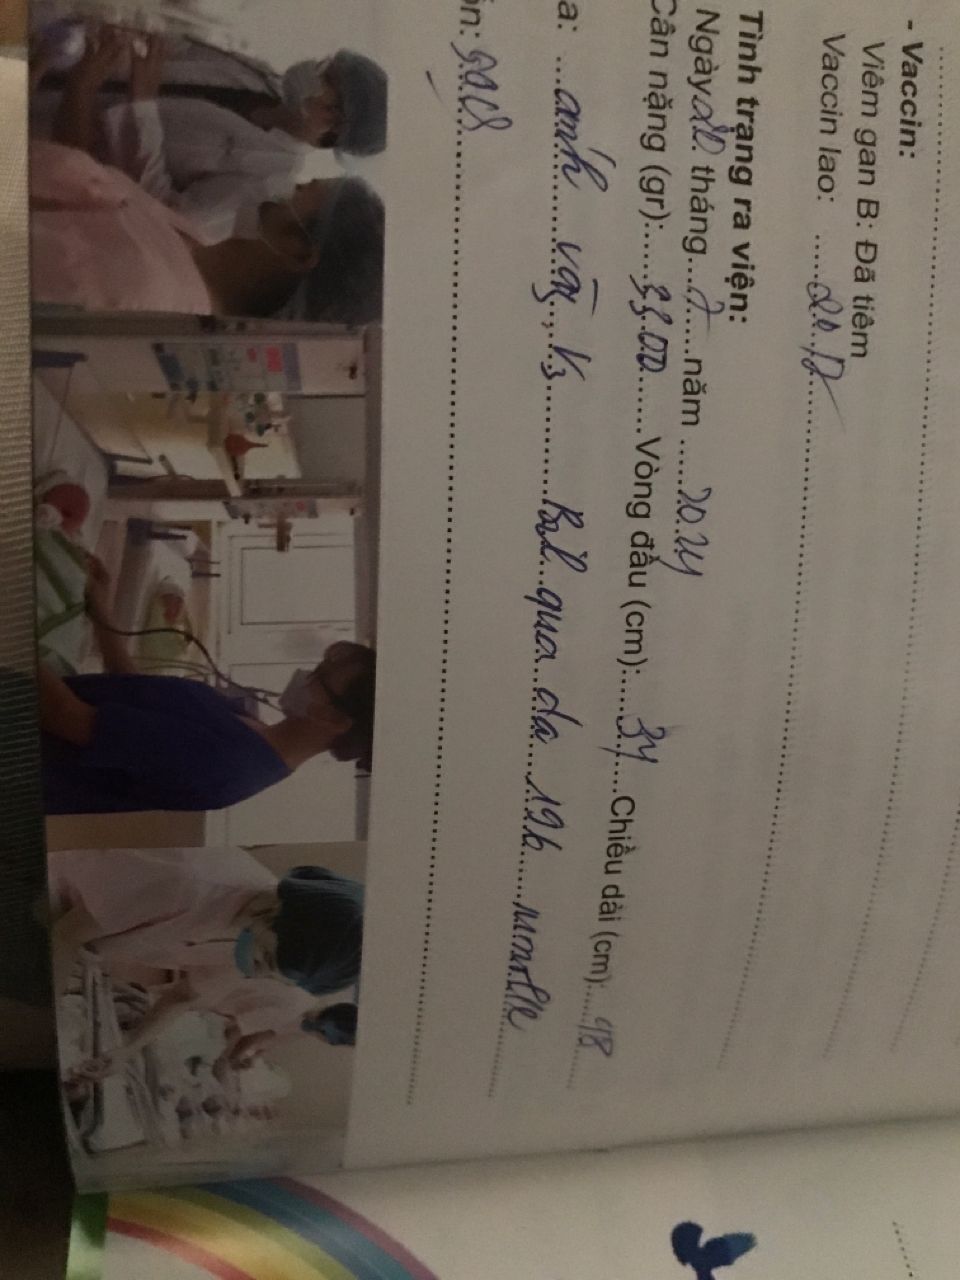 - Vaccin:
Viêm gan B: Đã tiêm
Vaccin lao:
Tình trạng ra viện:
Ngày tháng năm 2024
Cân nặng (gr): 3300 Vòng đầu (cm): 34 Chiều dài (cm): 48
a: ánh vàng 1/3 Bil qua da 196 mmol/l
ồn: sạch